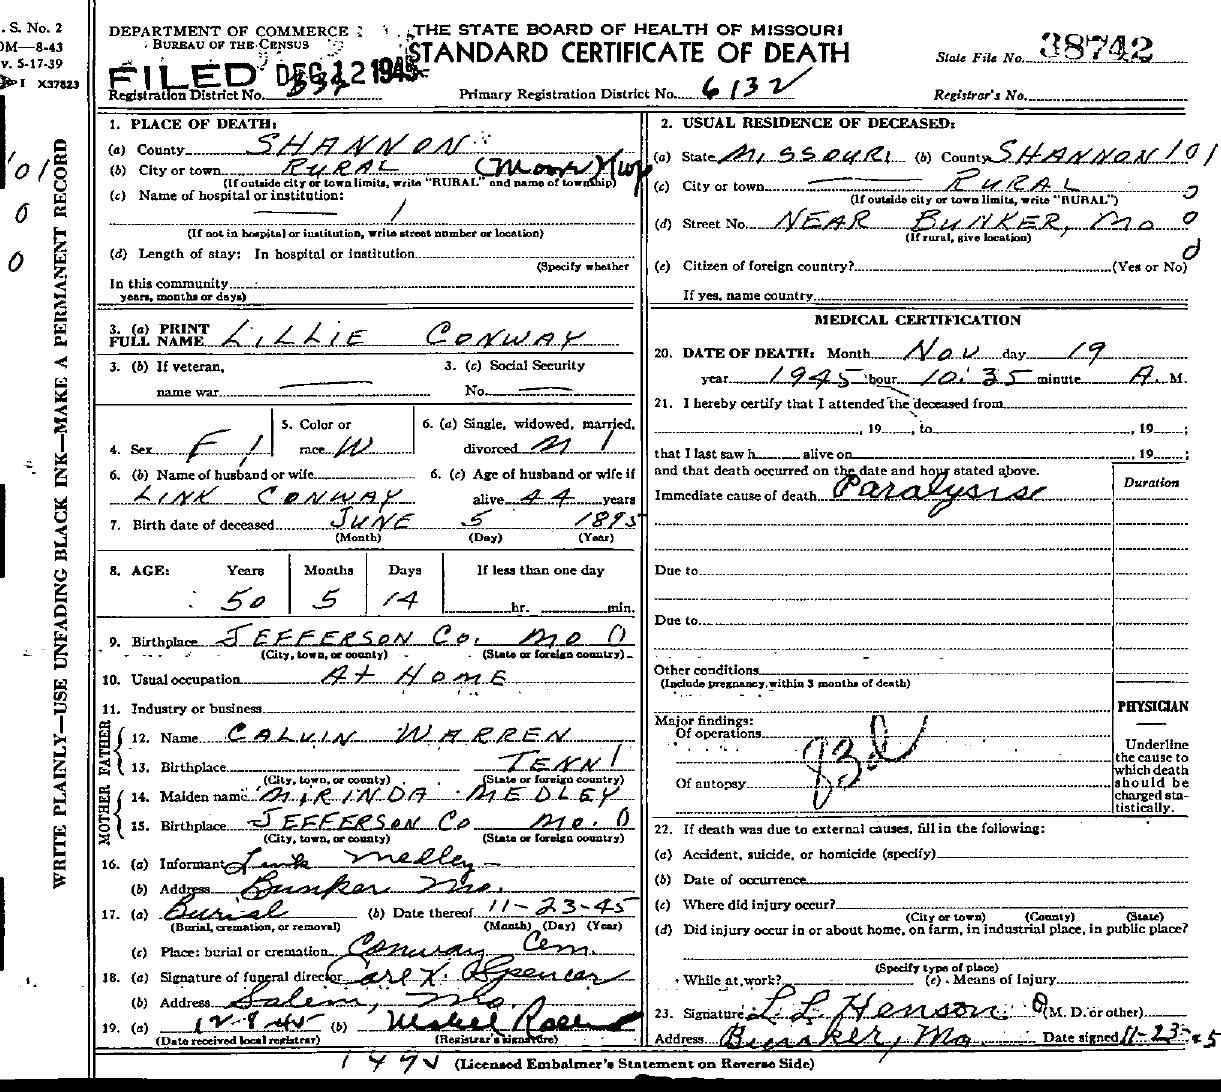 . S. No. 2
OM—8-43
v. 5-17-39
I X37823
WRITE PLAINLY—USE UNFADING BLACK INK—MAKE A PERMANENT RECORD
101
0
0
DEPARTMENT OF COMMERCE
BUREAU OF THE CENSUS
THE STATE BOARD OF HEALTH OF MISSOURI
STANDARD CERTIFICATE OF DEATH
State File No. 38742
FILED DEC 12 1945
Registration District No. 337
Primary Registration District No. 6132
Registrar's No.
1. PLACE OF DEATH:
(a) County SHANNON
(b) City or town RURAL (Moore) Twp
(If outside city or town limits, write "RURAL" and name of township)
(c) Name of hospital or institution:
1
(If not in hospital or institution, write street number or location)
(d) Length of stay: In hospital or institution
(Specify whether
In this community
years, months or days)
2. USUAL RESIDENCE OF DECEASED:
(a) State MISSOURI (b) County SHANNON 101
(c) City or town RURAL
(If outside city or town limits, write "RURAL")
(d) Street No. NEAR BUNKER, MO 0
(If rural, give location)
(e) Citizen of foreign country? (Yes or No)
If yes, name country
3. (a) PRINT FULL NAME LILLIE CONWAY
3. (b) If veteran,
name war
3. (c) Social Security
No.
4. Sex F 1
5. Color or
race W
6. (a) Single, widowed, married,
divorced M 1
6. (b) Name of husband or wife
LINK CONWAY
6. (c) Age of husband or wife if
alive 44 years
7. Birth date of deceased JUNE 5 1895
(Month) (Day) (Year)
8. AGE: Years Months Days If less than one day
50 5 14 hr. min.
9. Birthplace JEFFERSON CO. MO 0
(City, town, or county) (State or foreign country)
10. Usual occupation At HOME
11. Industry or business
FATHER
12. Name CALVIN WARREN
13. Birthplace TENN 1
(City, town, or county) (State or foreign country)
MOTHER
14. Maiden name MIRINDA MEDLEY
15. Birthplace JEFFERSON CO MO. 0
(City, town, or county) (State or foreign country)
16. (a) Informant Medley
(b) Address Bunker Mo.
17. (a) Burial (b) Date thereof 11-23-45
(Burial, cremation, or removal) (Month) (Day) (Year)
(c) Place: burial or cremation Conway Cem.
18. (a) Signature of funeral director Carl K. Spencer
(b) Address Salem, Mo.
19. (a) 12-8-45 (b) Mabel
(Date received local registrar) (Registrar's signature)
MEDICAL CERTIFICATION
20. DATE OF DEATH: Month Nov day 19
year 1945 hour 10:35 minute A. M.
21. I hereby certify that I attended the deceased from
, 19 , to , 19 ;
that I last saw h alive on , 19 ;
and that death occurred on the date and hour stated above.
Duration
Immediate cause of death Paralysis
Due to
Due to
Other conditions
(Include pregnancy within 3 months of death)
PHYSICIAN
Major findings:
Of operations
Of autopsy
Underline
the cause to
which death
should be
charged sta-
tistically.
22. If death was due to external causes, fill in the following:
(a) Accident, suicide, or homicide (specify)
(b) Date of occurrence
(c) Where did injury occur?
(City or town) (County) (State)
(d) Did injury occur in or about home, on farm, in industrial place, in public place?
(Specify type of place)
While at work? (e) Means of Injury
23. Signature L L Henson (M. D. or other)
Address Bunker, Mo Date signed 11-23-45
(Licensed Embalmer's Statement on Reverse Side)